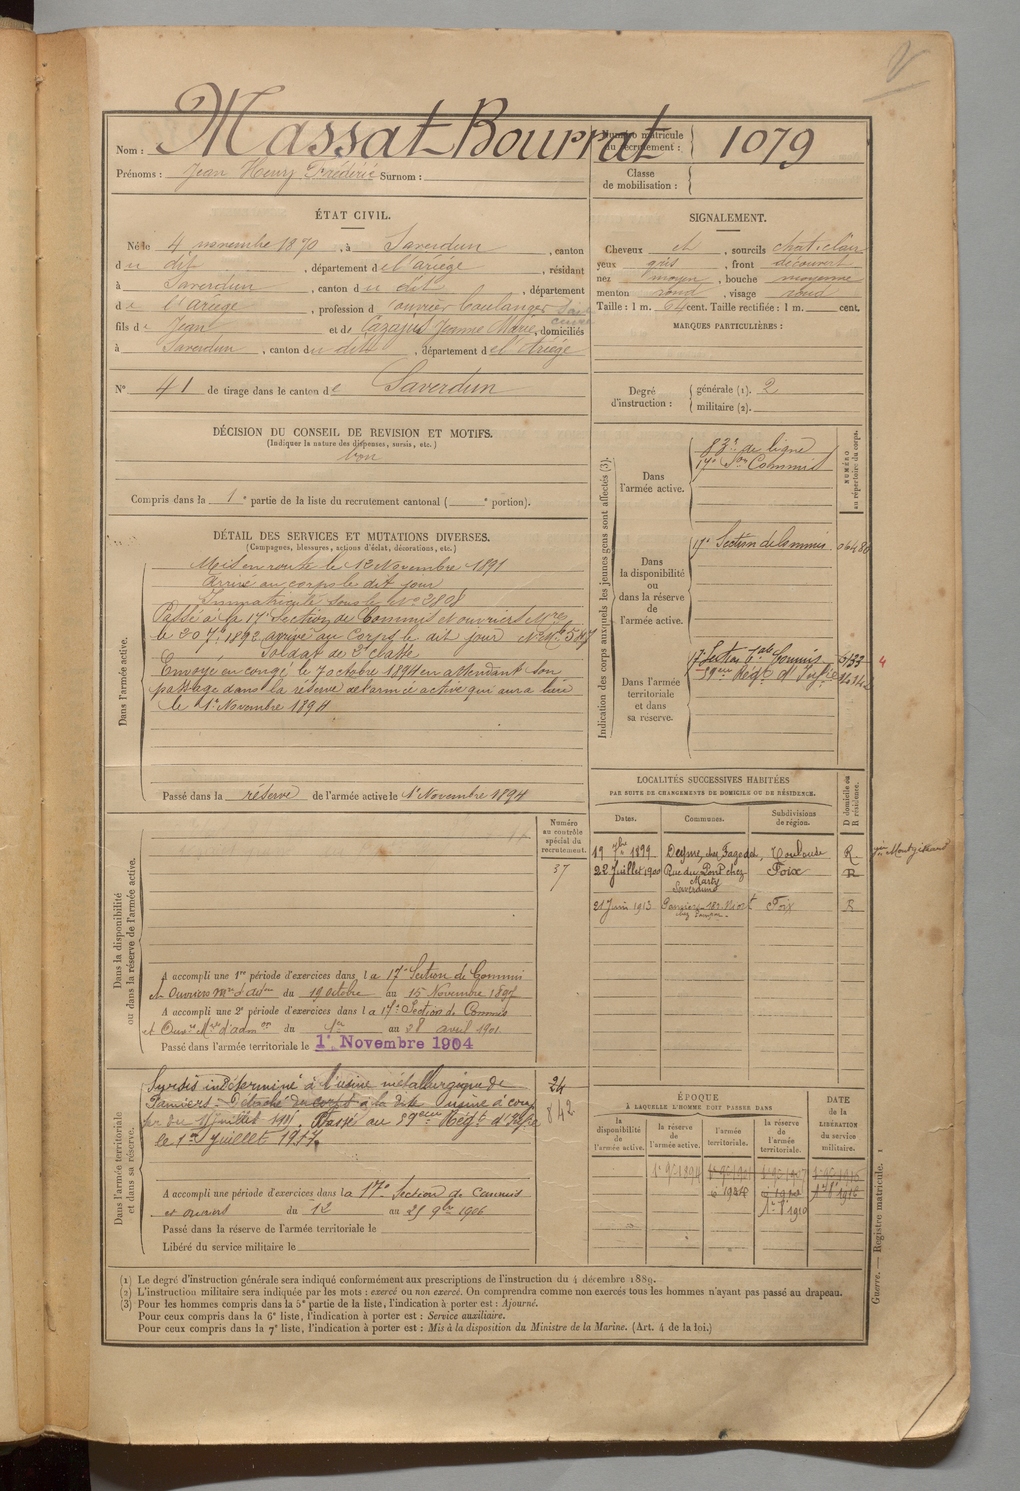 Nom : Massat-Bourrut
Numéro matricule du recrutement : 1079
Prénoms : Jean Henry Frédéric Surnom :
Classe de mobilisation :
ÉTAT CIVIL.
Né le 4 novembre 1870, à Saverdun, canton
du dit, département de l'ariége, résidant
à Saverdun, canton du dit, département
de l'ariége, profession d'ouvrier boulanger
fils de Jean et de Cazajus Jeanne Marie, domiciliés
à Saverdun, canton du dit, département de l'Ariége
N° 41 de tirage dans le canton de Saverdun
SIGNALEMENT.
Cheveux et, sourcils chat. clair
yeux gris, front découvert
nez moyen, bouche moyenne
menton rond, visage rond
Taille : 1 m. 64 cent. Taille rectifiée : 1 m. cent.
MARQUES PARTICULIÈRES :
Degré d'instruction : générale (1). 2
militaire (2).
DÉCISION DU CONSEIL DE REVISION ET MOTIFS.
(Indiquer la nature des dispenses, sursis, etc.)
bon
Compris dans la 1e partie de la liste du recrutement cantonal ( e portion).
DÉTAIL DES SERVICES ET MUTATIONS DIVERSES.
(Campagnes, blessures, actions d'éclat, décorations, etc.)
Dans l'armée active.
Mis en route le 12 Novembre 1891
Arrivé au corps le dit jour
Immatriculé sous le No 2808
Passé à la 17e Section de Commis et ouvriers Mres
le 20 7bre 1892 arrivé au Corps le dit jour
Soldat de 2e classe
Envoyé en congé le 7 octobre 1894 en attendant son
passage dans la réserve de l'armée active qui aura lieu
le 1er Novembre 1894
Passé dans la réserve de l'armée active le 1er Novembre 1894
Indication des corps auxquels les jeunes gens sont affectés (3).
NUMÉRO au répertoire du corps.
Dans l'armée active.
83e de ligne
17e Son Commis
Dans la disponibilité ou dans la réserve de l'armée active.
17e Section de Commis
Dans l'armée territoriale et dans sa réserve.
LOCALITÉS SUCCESSIVES HABITÉES
PAR SUITE DE CHANGEMENTS DE DOMICILE OU DE RÉSIDENCE.
Dates. Communes. Subdivisions de région. D domicile ou R résidence.
19 7bre 1899 Toulouse R.
22 Juillet 1900 Rue du Pont chez Marty Saverdun Foix R
21 Juin 1913 Foix R
Dans la disponibilité ou dans la réserve de l'armée active.
Numéro au contrôle spécial du recrutement.
37
A accompli une 1re période d'exercices dans la 17e Section de Commis
et Ouvriers Mres d'Adon du 19 octobre au 15 Novembre 1897
A accompli une 2e période d'exercices dans la 17e Section de Commis
et Ouvrs Mres d'admon du 1er au 28 avril 1901
Passé dans l'armée territoriale le 1er Novembre 1904
Dans l'armée territoriale et dans sa réserve.
24
842
Sursis indéterminé à l'usine métallurgique de
Pamiers. Détaché du corps à la dite usine à
1917. Passé au 59eme Régt d'Infie
le 1er Juillet 1917.
A accompli une période d'exercices dans la 17e Section de Commis
et ouvriers du 12 au 25 9bre 1906
Passé dans la réserve de l'armée territoriale le
Libéré du service militaire le
ÉPOQUE
À LAQUELLE L'HOMME DOIT PASSER DANS
la disponibilité de l'armée active. la réserve de l'armée active. l'armée territoriale. la réserve de l'armée territoriale.
DATE de la LIBÉRATION du service militaire.
Guerre. — Registre matricule.
(1) Le degré d'instruction générale sera indiqué conformément aux prescriptions de l'instruction du 4 décembre 1889.
(2) L'instruction militaire sera indiquée par les mots : exercé ou non exercé. On comprendra comme non exercés tous les hommes n'ayant pas passé au drapeau.
(3) Pour les hommes compris dans la 5e partie de la liste, l'indication à porter est : Ajourné.
Pour ceux compris dans la 6e liste, l'indication à porter est : Service auxiliaire.
Pour ceux compris dans la 7e liste, l'indication à porter est : Mis à la disposition du Ministre de la Marine. (Art. 4 de la loi.)